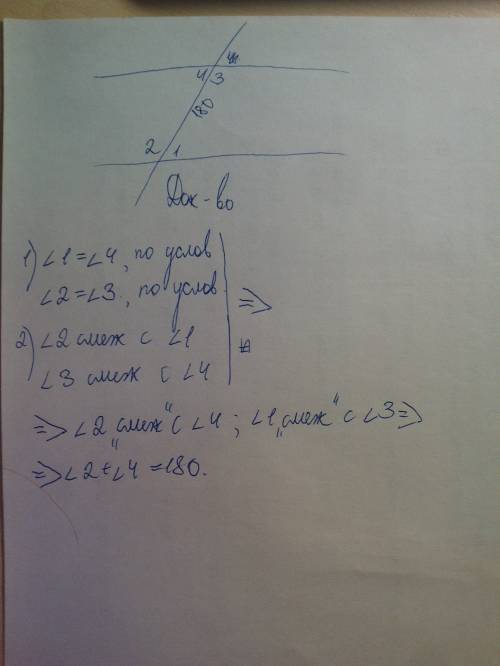 4 3
180
2 1
Док-во
1) ∠1=∠4, по услов
∠2=∠3, по услов
⇒
2) ∠2 смеж с ∠1
∠3 смеж с ∠4
⇒ ∠2 „смеж" с ∠4 ; ∠1 „смеж" с ∠3 ⇒
⇒ ∠2+∠4=180.